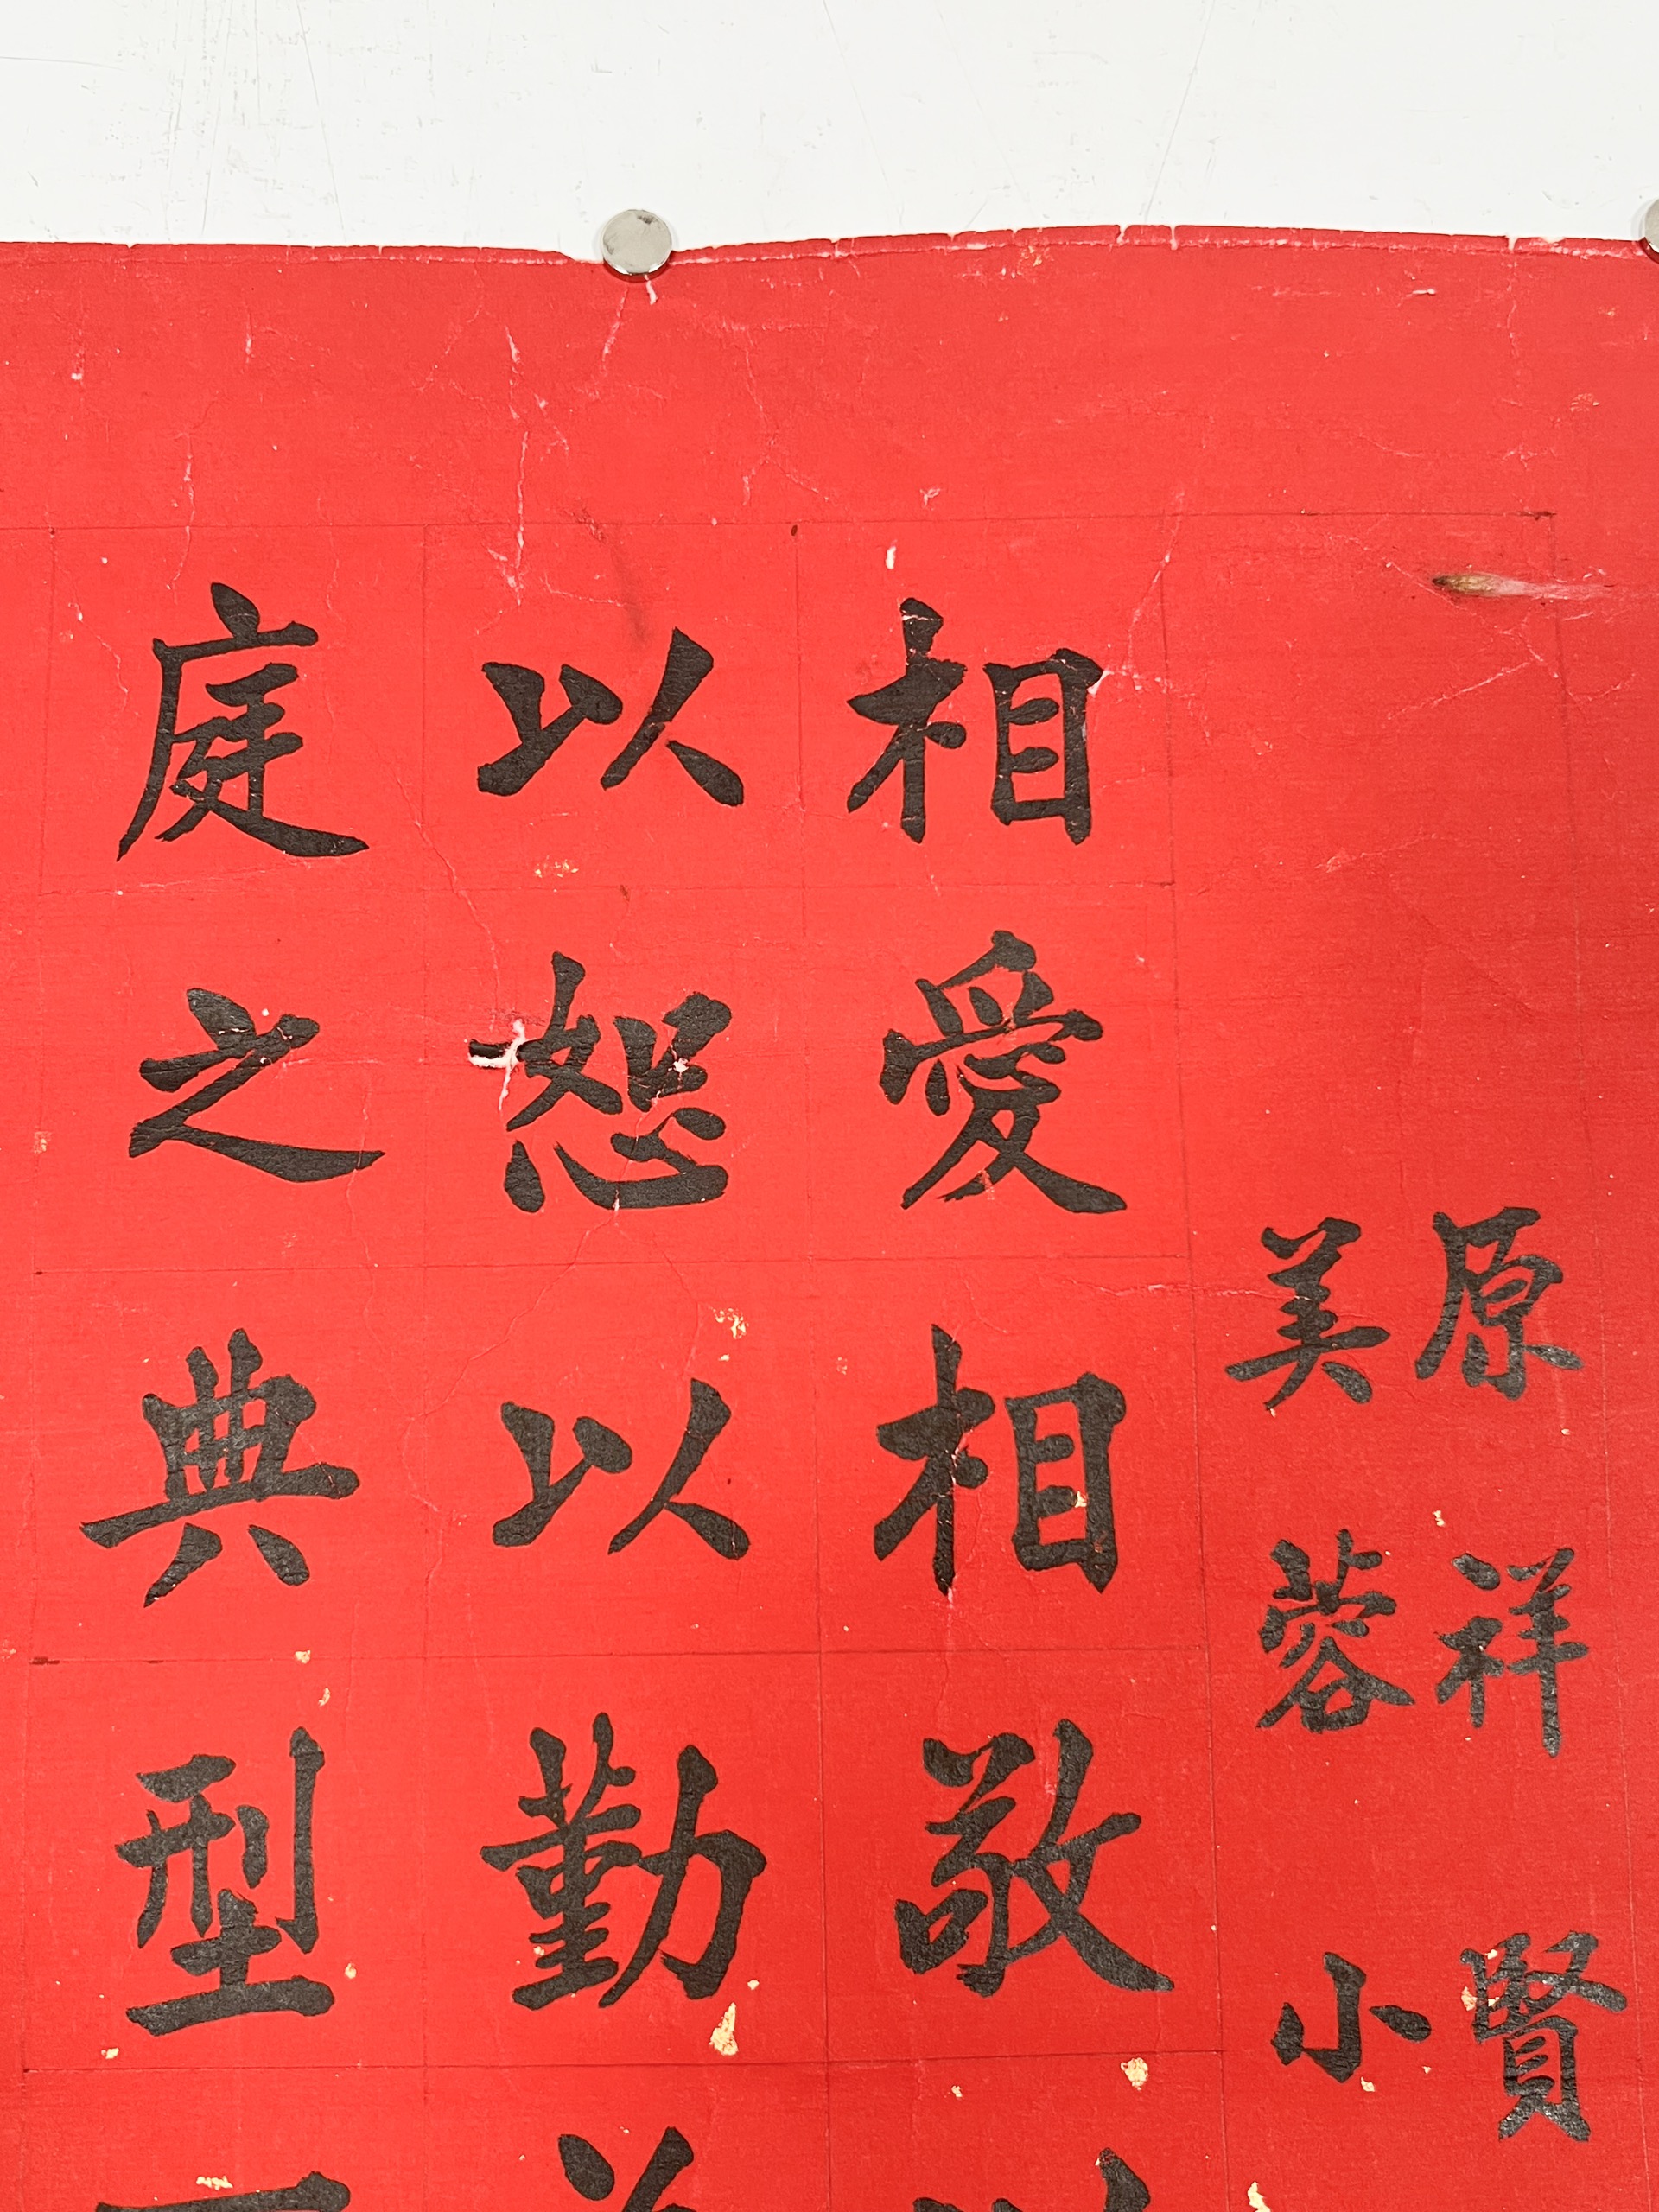 原祥賢
美蓉小
相愛相敬以
以恕以勤
庭之典型